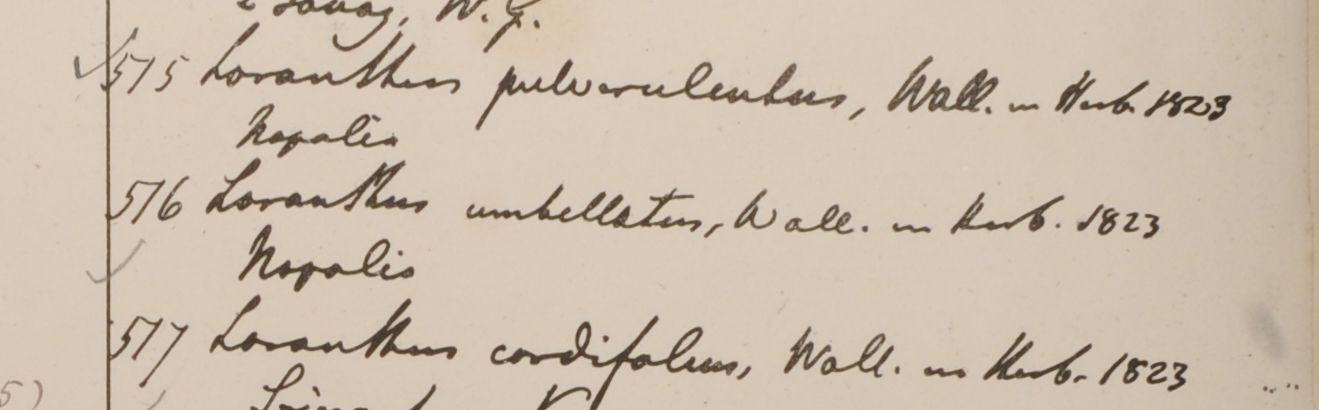 W. G.
515 Loranthus pulverulentus, Wall. in Herb. 1823
Napalia
516 Loranthus umbellatus, Wall. in Herb. 1823
Napalia
517 Loranthus cordifolius, Wall. in Herb. 1823